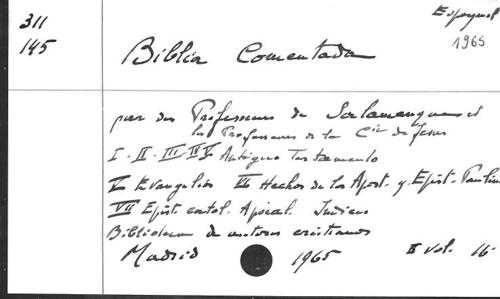 311
145
Espagnol
1965
Biblia Comentada
par des Professeurs de Salamanque et
les Professeurs de la Cie de Jesus
I - II - III - IV Antiguo Testamento
V Evangelios VI Hechos de los Apost. y Epist. Paulin
VII Epist. catol. Apocal. Indices
Biblioteca de autores cristianos
Madrid 1965 vol. 16-